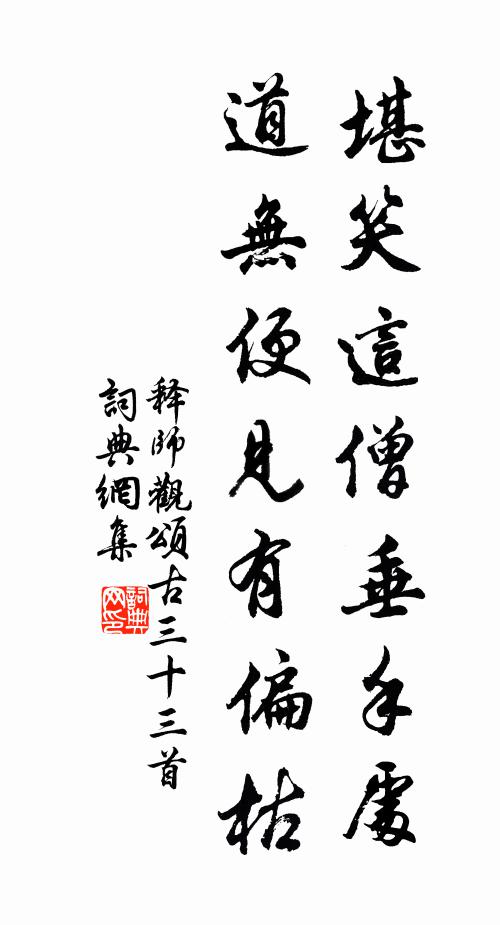 堪笑這僧垂手處
道無便見有偏枯
释師觀頌古三十三首
詞典網集
詞典网印